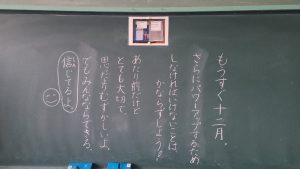 もうすぐ十二月。
さらにパワーアップするため
しなければいけないことは
かならずしよう？
あたり前だけど
とても大切で、
思ったよりむずかしいよ。
でもみんなならできる。
信じてるよ